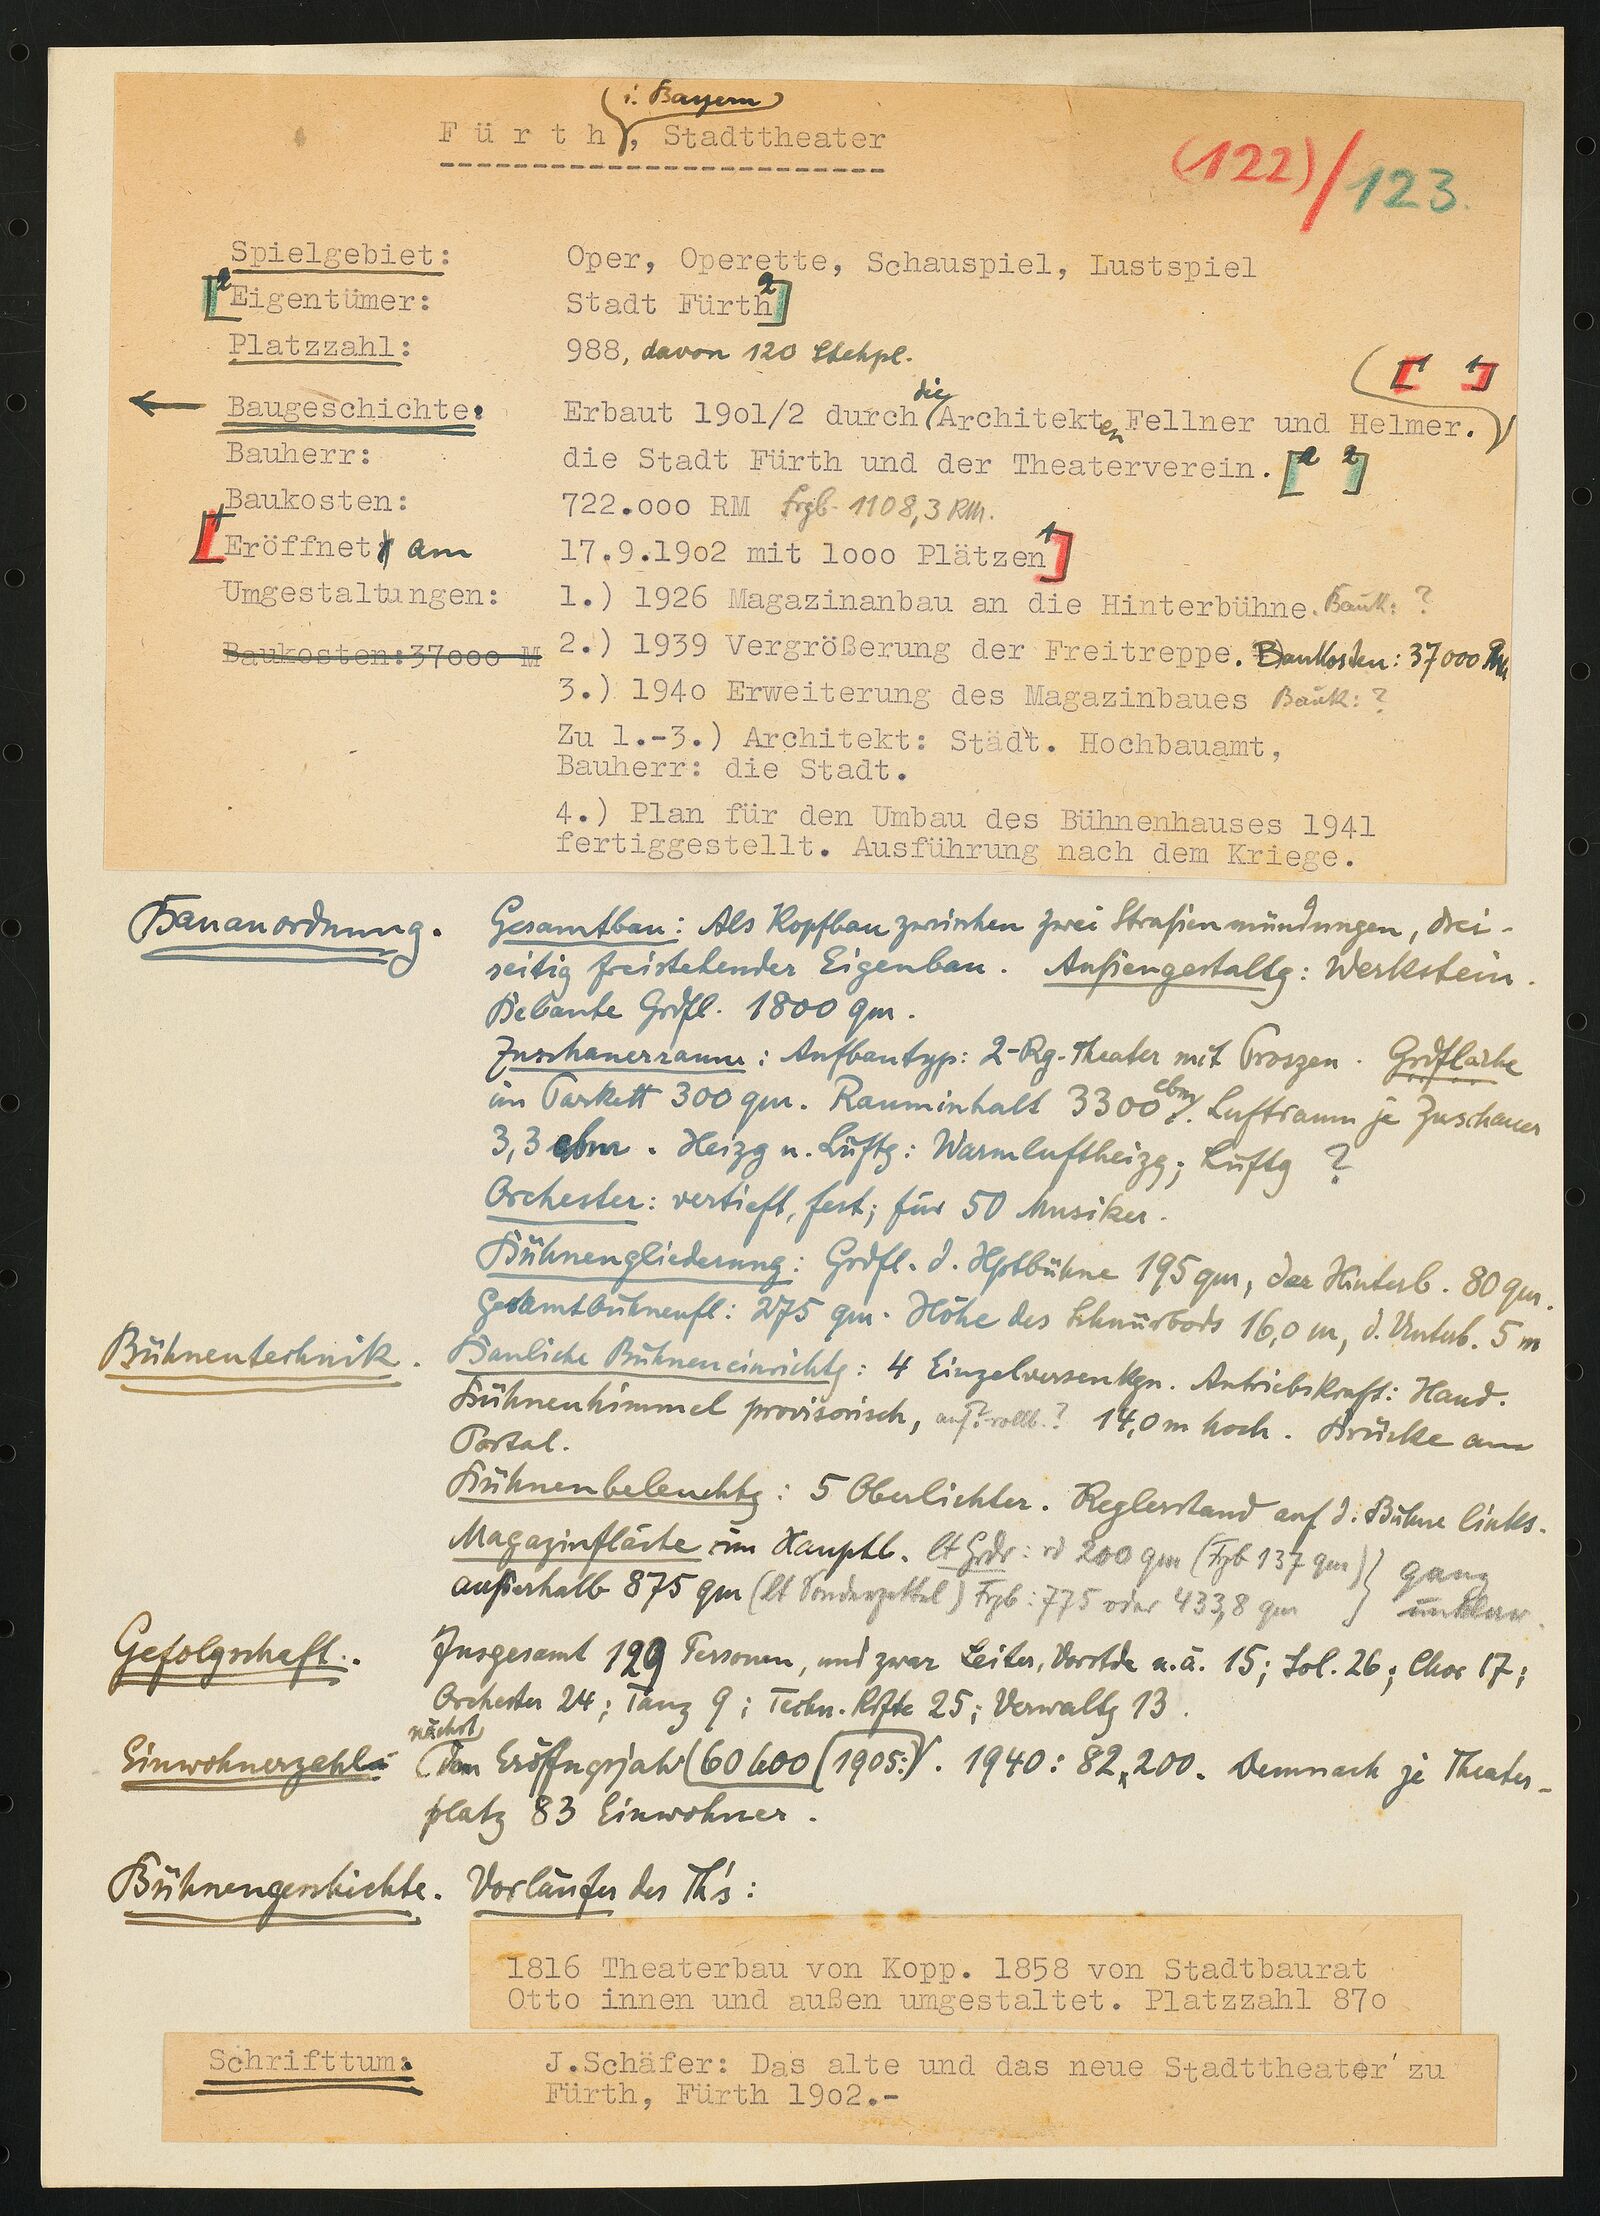 (i. Bayern)
Fürth, Stadttheater
(122)/123.
Spielgebiet: Oper, Operette, Schauspiel, Lustspiel
[2 Eigentümer: Stadt Fürth 2]
Platzzahl: 988, davon 120 Stehpl.
[1 1]
Baugeschichte: Erbaut 19o1/2 durch die Architekten Fellner und Helmer.
Bauherr: die Stadt Fürth und der Theaterverein. [2 2]
Baukosten: 722.ooo RM Frgb. 1108,3 RM.
[1 Eröffnet am 17.9.19o2 mit 1ooo Plätzen 1]
Umgestaltungen: 1.) 1926 Magazinanbau an die Hinterbühne. Bauk: ?
Baukosten:37ooo M 2.) 1939 Vergrößerung der Freitreppe. Baukosten: 37000 RM
3.) 194o Erweiterung des Magazinbaues Bauk: ?
Zu 1.-3.) Architekt: Städt. Hochbauamt,
Bauherr: die Stadt.
4.) Plan für den Umbau des Bühnenhauses 1941
fertiggestellt. Ausführung nach dem Kriege.
Bauanordnung. Gesamtbau: Als Kopfbau zwischen zwei Straßenmündungen, drei-
seitig freistehender Eigenbau. Außengestaltg: Werkstein.
Bebaute Grdfl. 1800 qm.
Zuschauerraum: Aufbautyp: 2-Rg-Theater mit Proszen. Grdfläche
im Parkett 300 qm. Rauminhalt 3300 cbm. Luftraum je Zuschauer
3,3 cbm. Heizg u. Lüftg: Warmluftheizg; Lüftg ?
Orchester: vertieft, fest; für 50 Musiker.
Bühnengliederung: Grdfl. d. Hptbühne 195 qm, der Hinterb. 80 qm.
Gesamtbühnenfl: 275 qm. Höhe des Schnürbods 16,0 m, d. Unterb. 5 m
Bühnentechnik. Bauliche Bühneneinrichtg: 4 Einzelversenkgn. Antriebskraft: Hand.
Bühnenhimmel provisorisch, aufrollb.? 14,0 m hoch. Brücke am
Portal.
Bühnenbeleuchtg: 5 Oberlichter. Reglerstand auf d. Bühne links.
Magazinfläche im Hauptb. lt Grdr: rd 200 qm (Frgb 137 qm) } ganz
außerhalb 875 qm (lt Sonderzettel) Frgb: 775 oder 433,8 qm } unklar.
Gefolgschaft. Insgesamt 129 Personen, und zwar Leiter, Vorstde u.ä. 15; Sol. 26; Chor 17;
Orchester 24; Tanz 9; Techn. Kräfte 25; Verwaltg 13.
nächst
Einwohnerzahl: (dem Eröffngsjahr (60 600 (1905:). 1940: 82,200. Demnach je Theater-
platz 83 Einwohner.
Bühnengeschichte. Vorläufer des Th's:
1816 Theaterbau von Kopp. 1858 von Stadtbaurat
Otto innen und außen umgestaltet. Platzzahl 87o
Schrifttum: J.Schäfer: Das alte und das neue Stadttheater zu
Fürth, Fürth 19o2.-